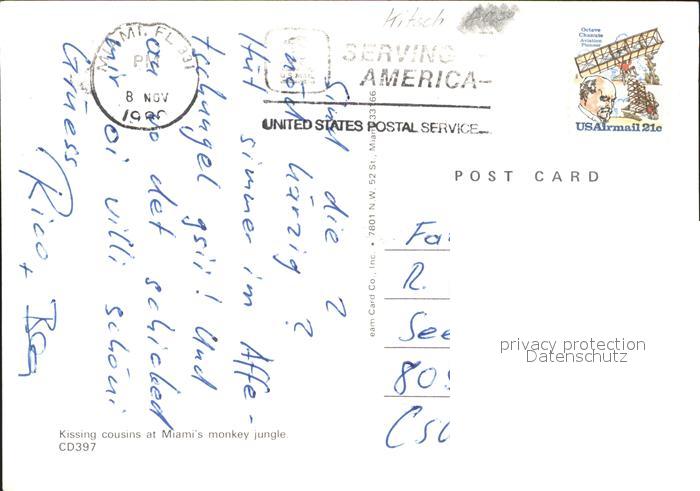 Kitsch
MIAMI, FL 331
PM
8 NOV
SERVING
AMERICA
UNITED STATES POSTAL SERVICE
Octave
Chanute
Aviation
Pioneer
USAirmail 21c
POST CARD
Sind die 2
nöd härzig?
Hüt simmer im Affe-
tschungel gsii! Und
au vo det schicked
mir oi villi schöni
Grüess
Rico +
eam Card Co., Inc. • 7801 N.W. 52 St., Miami 33166
Fa
R.
See
80
privacy protection
Datenschutz
Kissing cousins at Miami's monkey jungle.
CD397